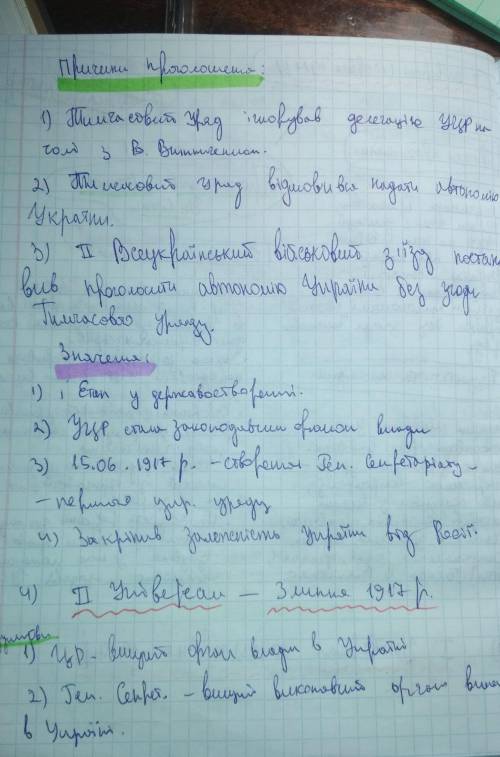 Причини проголошення:
1) Тимчасовий Уряд ігнорував делегацію УЦР на
чолі з В. Винниченком.
2) Тимчасовий уряд відмовився надати автономію
Україні.
3) II Всеукраїнський військовий з'їзд постано
вив проголосити автономію України без згоди
Тимчасового уряду.
Значення:
1) 1 Етап у державотворенні.
2) УЦР стала законодавчим органом влади
3) 15.06.1917 р. - створення Ген. Секретаріату -
- першого укр. уряду
4) Закріпив залежність України від Росії.
4) II Універсал - 3 липня 1917 р.
умови
1) ЦР - вищий орган влади в Україні
2) Ген. Секрет. - вищий виконавчий орган влади
в Україні.